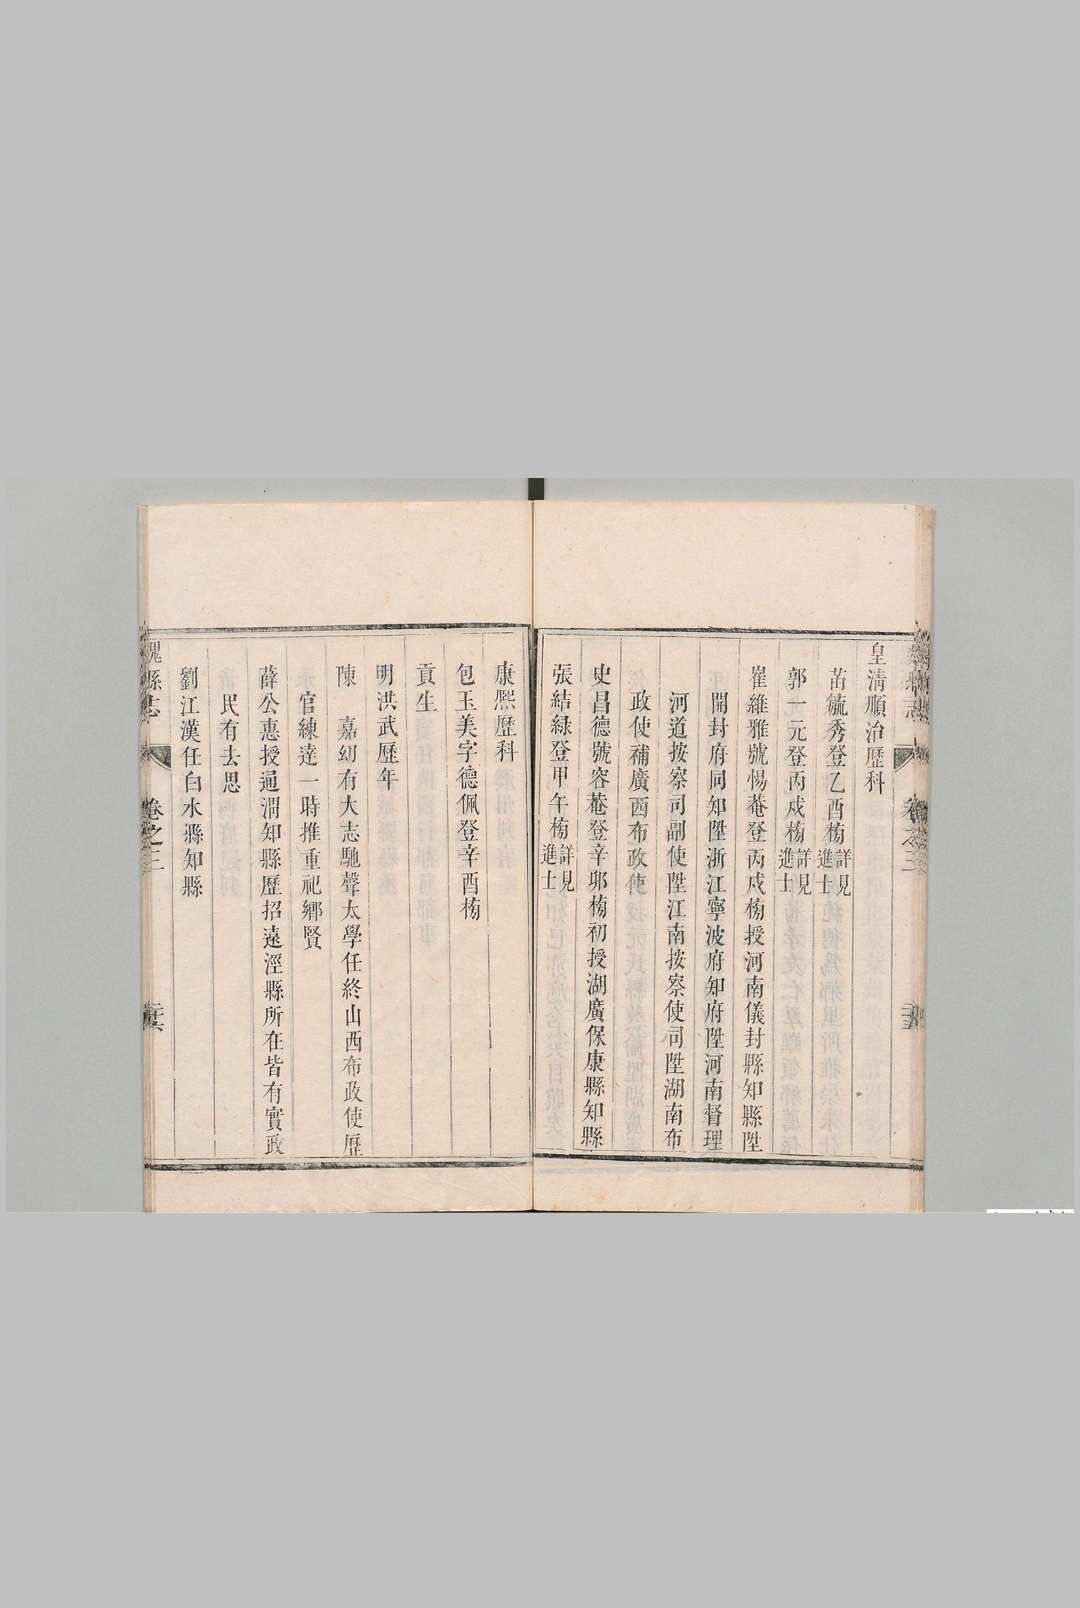 皇淸順治歷科
苗毓秀登乙酉榜詳見進士
郭一元登丙戍榜詳見進士
崔維雅號惕菴登丙戍榜授河南儀封縣知縣陞
開封府同知陞浙江寧波府知府陞河南督理
河道按察司副使陞江南按察使司陞湖南布
政使補廣西布政使
史昌德號容菴登辛卯榜初授湖廣保康縣知縣
張結緑登甲午榜詳見進士
康熙歷科
包玉美字德佩登辛酉榜
貢生
明洪武歷年
陳嘉幼有大志馳聲太學任終山西布政使歷
官練達一時推重祀鄉賢
薛公惠授通渭知縣歷招遠涇縣所在皆有實政
民有去思
劉江漢任白水縣知縣
魏縣志
卷之三
二十六